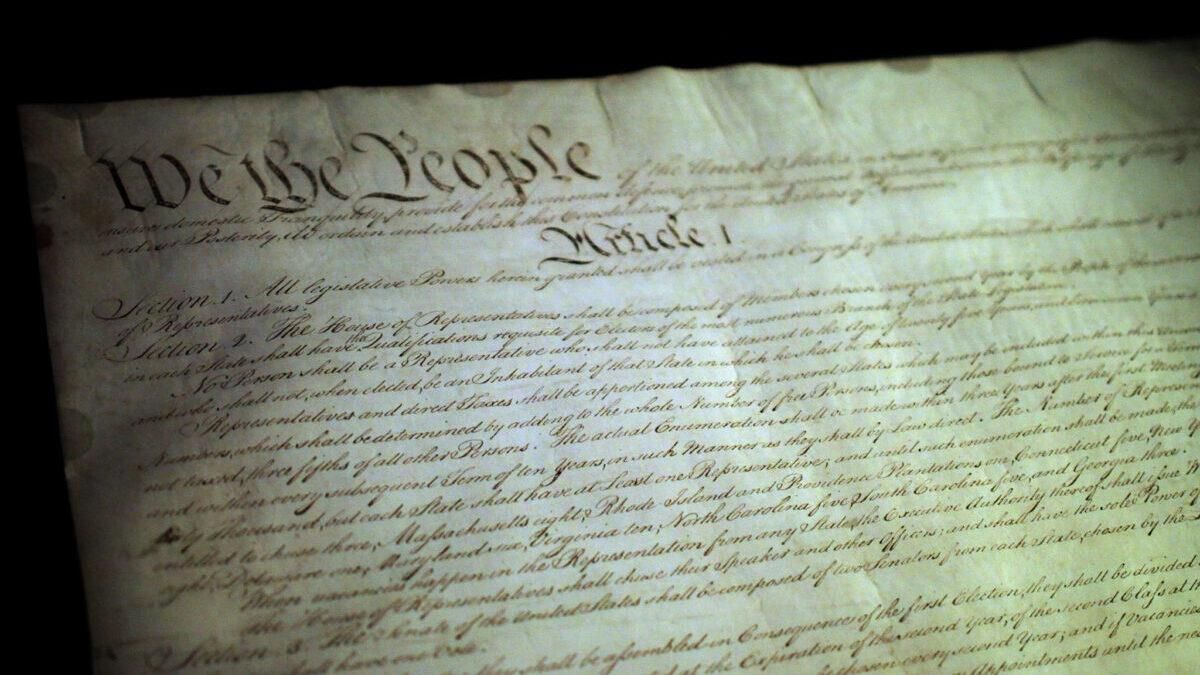 We the People of the United States
insure domestic Tranquility, provide for the common defence,
and our Posterity, do ordain and establish this Constitution for the United States of America.
Article. I.
Section. 1. All legislative Powers herein granted shall be vested in a Congress of the United States, which shall consist of
of Representatives.
Section. 2. The House of Representatives shall be composed of Members chosen every second Year by the People of the
in each State shall have the Qualifications requisite for Electors of the most numerous Branch of the State Legislature.
No Person shall be a Representative who shall not have attained to the Age of twenty five Years,
and who shall not, when elected, be an Inhabitant of that State in which he shall be chosen.
Representatives and direct Taxes shall be apportioned among the several States which may be included within this Union,
Numbers, which shall be determined by adding to the whole Number of free Persons, including those bound to Service for a Term
not taxed, three fifths of all other Persons. The actual Enumeration shall be made within three Years after the first Meeting
and within every subsequent Term of ten Years, in such Manner as they shall by Law direct. The Number of Represen
thirty Thousand, but each State shall have at Least one Representative; and until such enumeration shall be made, the
entitled to chuse three, Massachusetts eight, Rhode Island and Providence Plantations one, Connecticut five, New Y
eight, Delaware one, Maryland six, Virginia ten, North Carolina five, South Carolina five, and Georgia three.
When vacancies happen in the Representation from any State, the Executive Authority thereof shall issue W
The House of Representatives shall chuse their Speaker and other Officers; and shall have the sole Power o
Section. 3. The Senate of the United States shall be composed of two Senators from each State, chosen by the
shall have one Vote.
they shall be assembled in Consequence of the first Election, they shall be divided
at the Expiration of the second Year, of the second Class at
chosen every second Year; and if Vacancies
Appointments until the ne